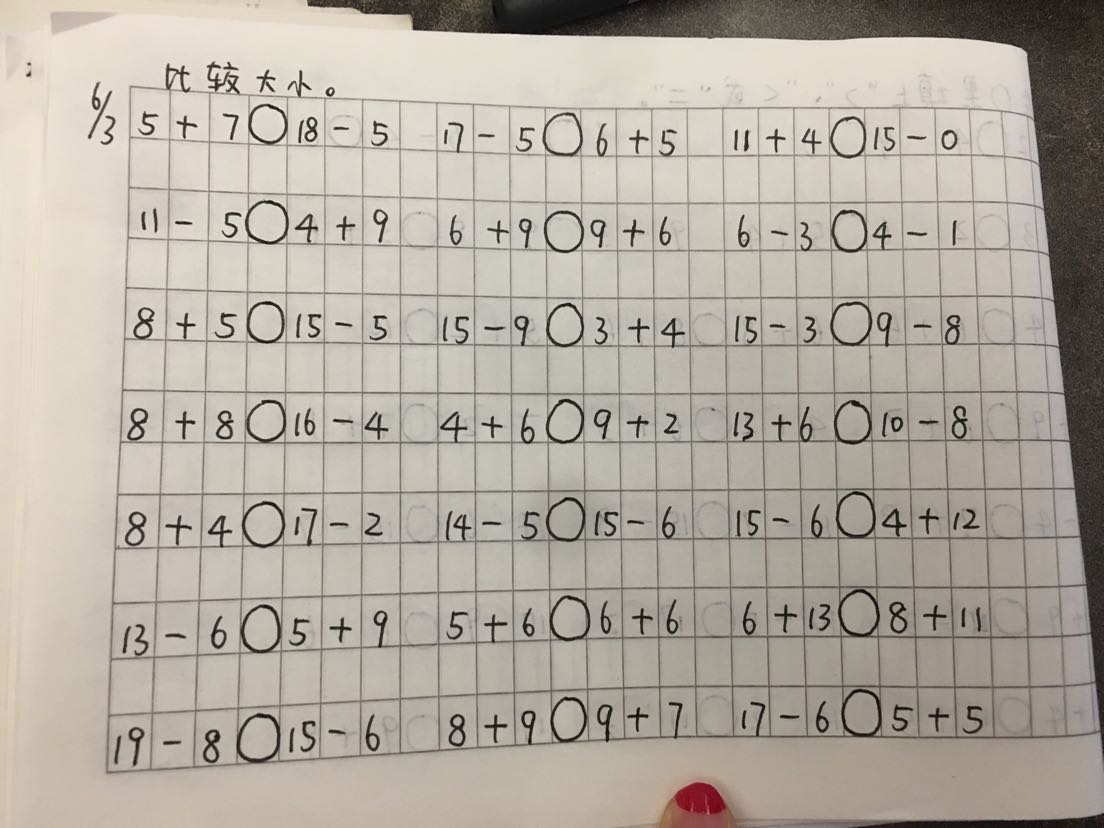 比较大小。
6/3
5 + 7 ○ 18 - 5 17 - 5 ○ 6 + 5 11 + 4 ○ 15 - 0
11 - 5 ○ 4 + 9 6 + 9 ○ 9 + 6 6 - 3 ○ 4 - 1
8 + 5 ○ 15 - 5 15 - 9 ○ 3 + 4 15 - 3 ○ 9 - 8
8 + 8 ○ 16 - 4 4 + 6 ○ 9 + 2 13 + 6 ○ 10 - 8
8 + 4 ○ 17 - 2 14 - 5 ○ 15 - 6 15 - 6 ○ 4 + 12
13 - 6 ○ 5 + 9 5 + 6 ○ 6 + 6 6 + 13 ○ 8 + 11
19 - 8 ○ 15 - 6 8 + 9 ○ 9 + 7 17 - 6 ○ 5 + 5